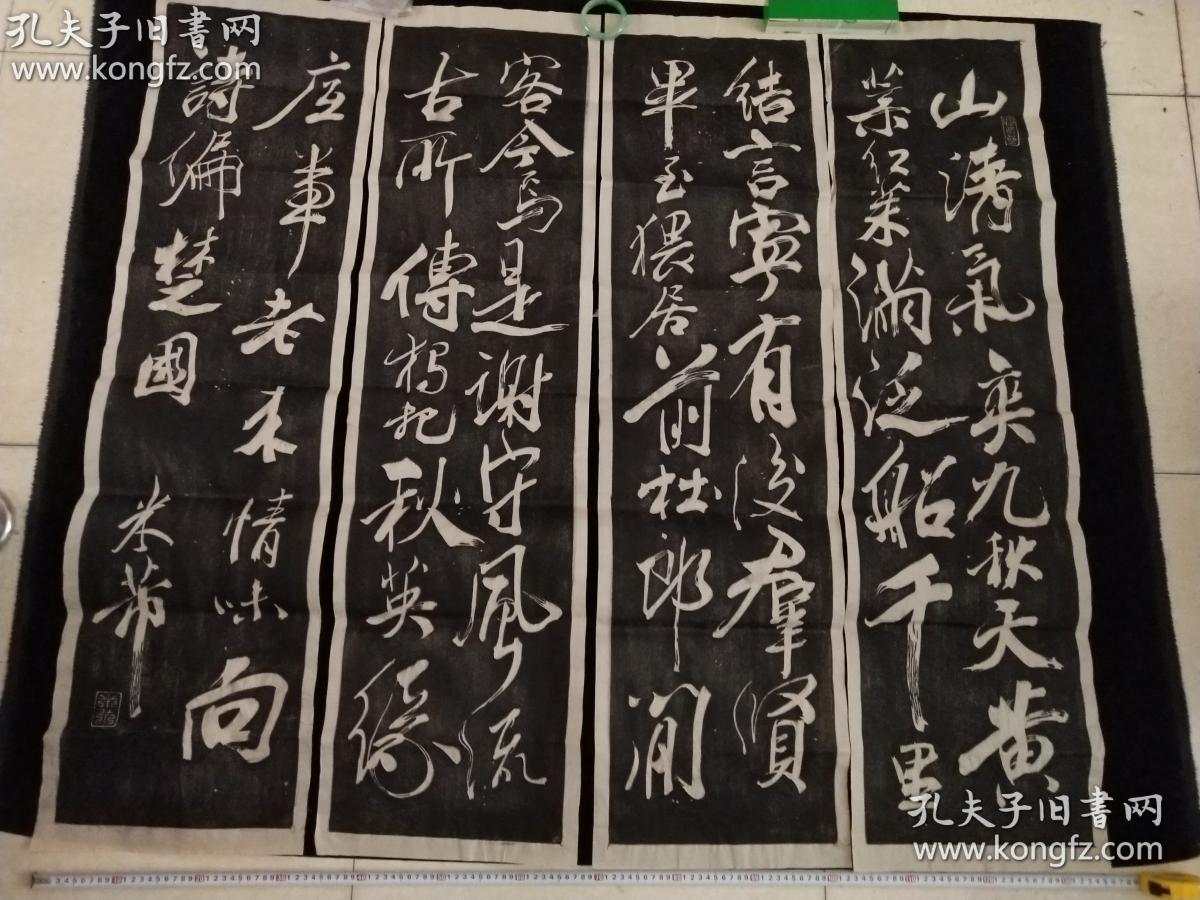 孔夫子旧书网
www.kongfz.com
山清氣爽九秋天黄
菊紅茱滿泛船千里
結言寧有後羣賢
畢至猥居前杜郎閒
客今焉是謝守風流
古所傳獨把秋英緣
底事老來情味向
詩偏楚國米芾
孔夫子旧书网
www.kongfz.com